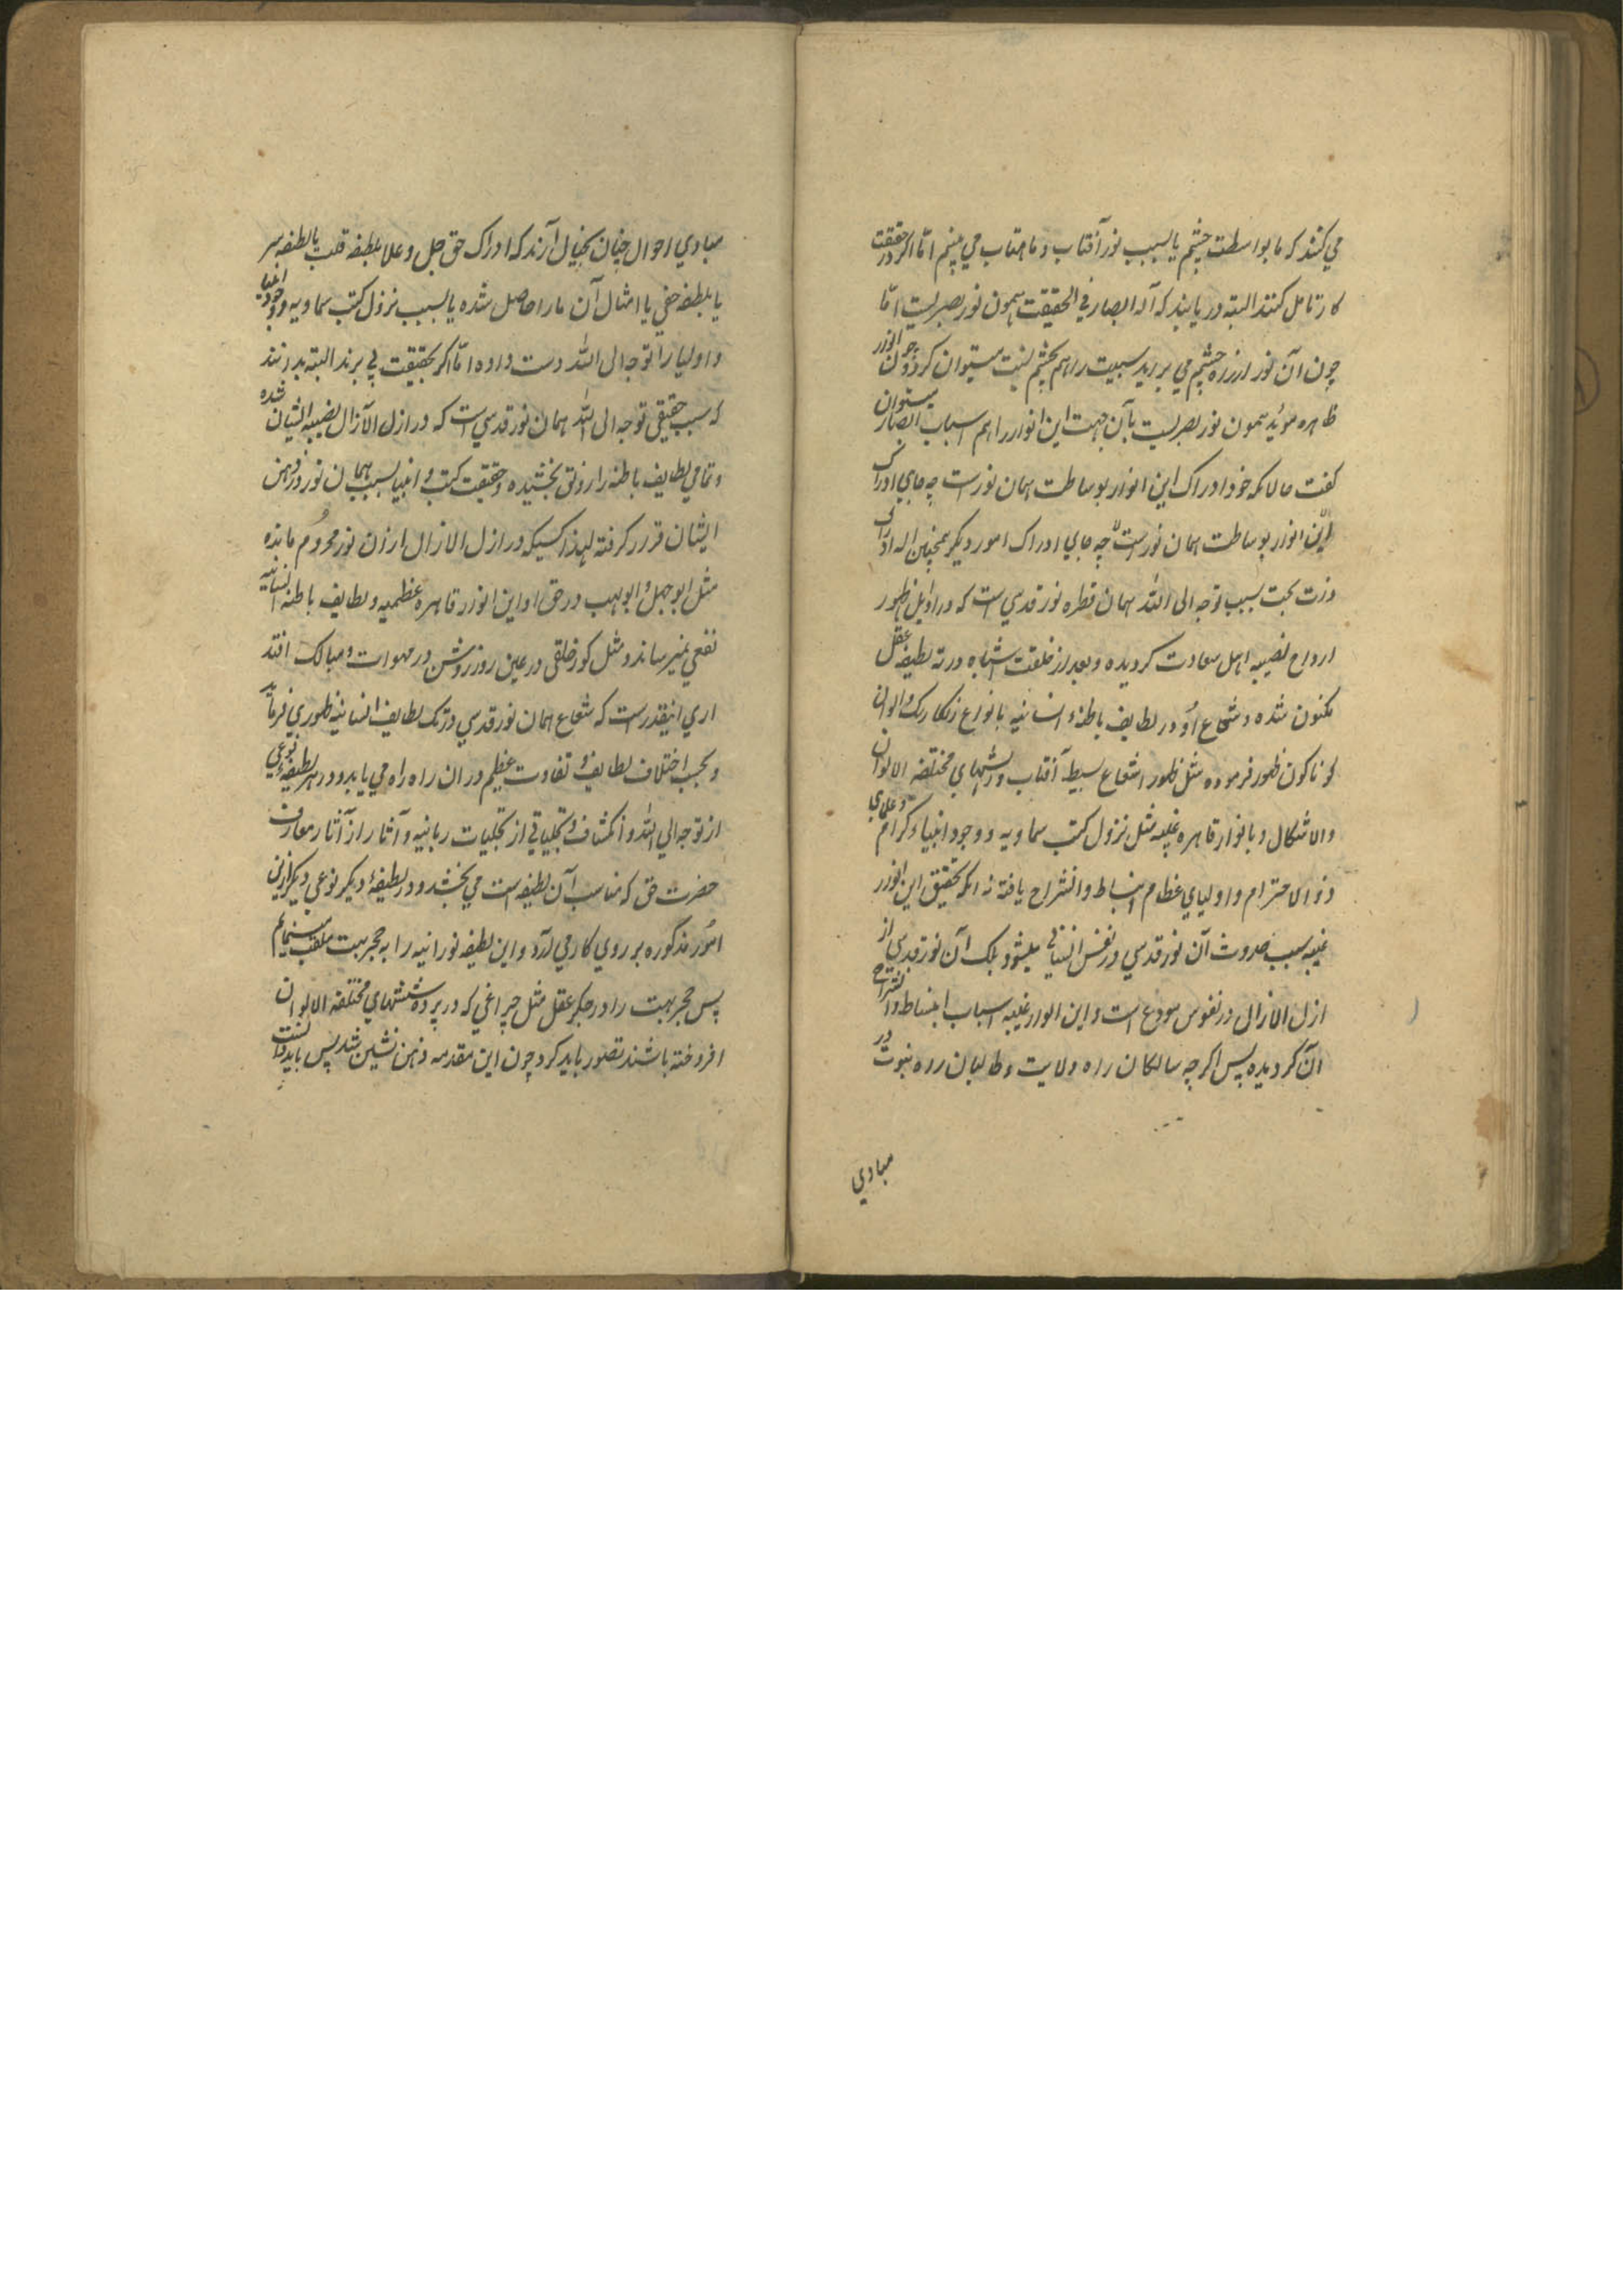 می کنند که ما بواسطت چشم یا بسبب نور آفتاب و ماهتاب می بینم اما اگر در حقیقت
کار تامل کنند البته دریابند که آله ابصار فی الحقیقت همون نور بصریست اما
چون آن نور از راه چشم می براید سببیت را هم بچشم نسبت میتوان کرد و چون انوار
ظاهره موید همون نور بصریست بآن جهت این انوار را هم اسباب ابصار میتوان
گفت حالانکه خود ادراک این انوار بوساطت همان نورست چه جای ادراک
این انوار بوساطت همان نورست چه جای ادراک امور دیگر همچنین اله ادراک
ذات بحت بسبب توجه الی الله همان قطره نور قدسی است که در اوایل ظهور
ارواح نصیبه اهل سعادت گردیده و بعد از خلقت اشباه در ته لطیفه عقل
مکنون شده و شعاع او در لطایف باطنه انسانیه بانواع رنگارنگ والوان
گوناگون ظهور فرموده مثل ظهور اشعاع بسیطه آفتاب در شیشهای مختلفه الالوان
والاشکال و بانوار قاهره غیبیه مثل نزول کتب سماویه و وجود انبیاء کرام و علمای
ذو الاحترام و اولیای عظام انبساط و انشراح یافته نه انکه تحقیق این انوار
غیبیه سبب حدوث آن نور قدسی در نفس انسانی میشود بلک آن نور قدسی از
ازل الازال در نفوس مودع است و این انوار غیبیه اسباب انبساط و انشراح
آن گردیده پس اگرچه سالکان راه ولایت و طالبان راه نبوت در
مبادی
مبادی احوال چنان بخیال آرند که ادراک حق جل و علا بلطیفه قلب یا لطیفه سر
یا بلطیفه خفی یا امثال آن ما را حاصل شده یا بسبب نزول کتب سماویه و وجود انبیا
و اولیا را توجه الی الله دست داده اما اگر بحقیقت پی برند البته بدانند
که سبب حقیقی توجه الی الله همان نور قدسی است که در ازل الآزال نصیبه ایشان شده
و تمامی لطایف باطنه را رونق بخشیده و حقیقت کتب و انبیا بسبب همان نور در ذهن
ایشان قرار گرفته لهذا کسیکه در ازل الازال ازان نور محروم مانده
مثل ابوجهل و ابولهب در حق او این انوار قاهره عظیمه و لطایف باطنه انسانیه
نفعی نمیرساند و مثل کور خلقی در عین روز روشن در مهوات و مهالک افتد
اری اینقدرست که شعاع همان نور قدسی در تک لطایف انسانیه ظهوری فرماید
و بحسب اختلاف لطایف و تفاوت عظیم دران راه راه می یابد و در هر لطیفه نوعی
از توجه الی الله و انکشاف و تجلیاتی از تجلیات ربانیه و آثار از آثار معارف
حضرت حق که مناسب آن لطیفه است می بخشد و در لطیفهٔ دیگر نوعی دیگر ازین
امور مذکوره بر روی کار می آرد و این لطیفه نورانیه را به حجر بهت ملقب مینمایم
پس حجر بهت را در جگر عقل مثل چراغی که در پرده شیشهای مختلفه الالوان
افروخته باشند تصور باید کرد چون این مقدمه ذهن نشین شد پس باید دانست